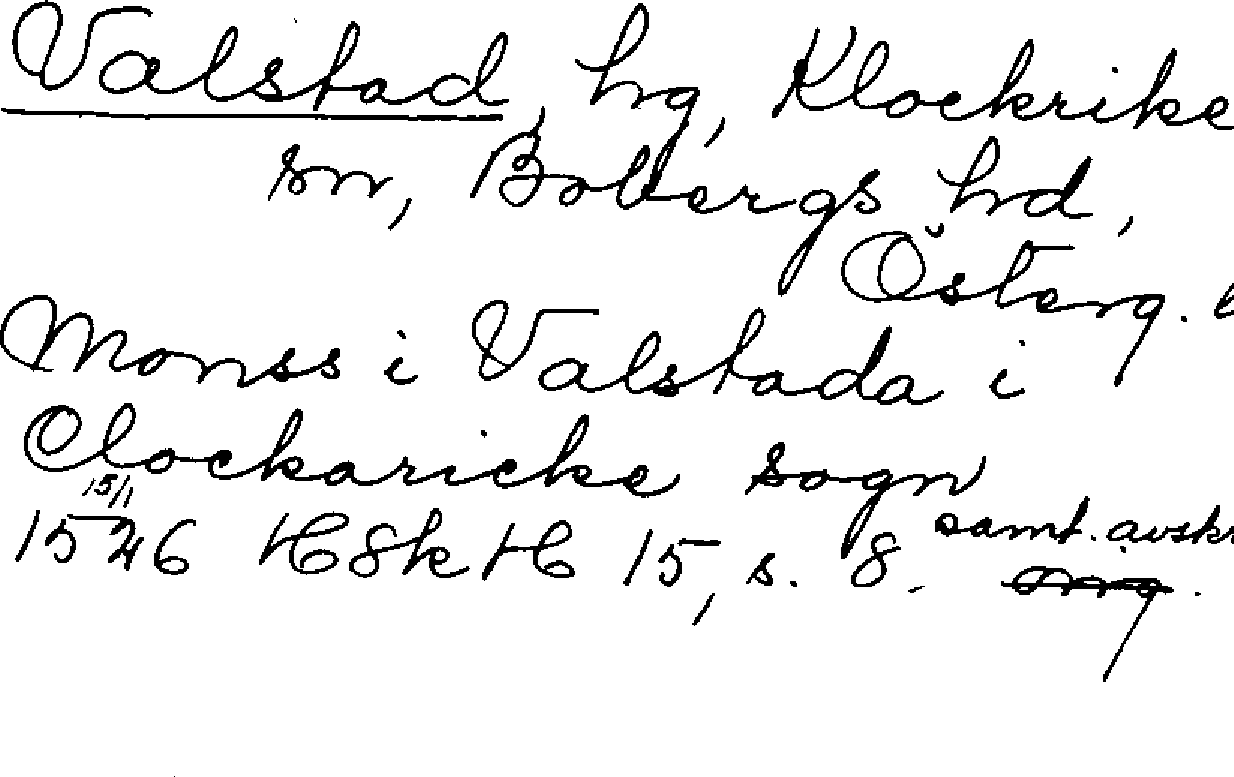 Valstad, hg, Klockrike
sn, Bobergs hd,
Österg. l
Monss i Valstada i
Clockaricke sogn
15/1
1526 H8kH 15, s. 8. samt. avskr